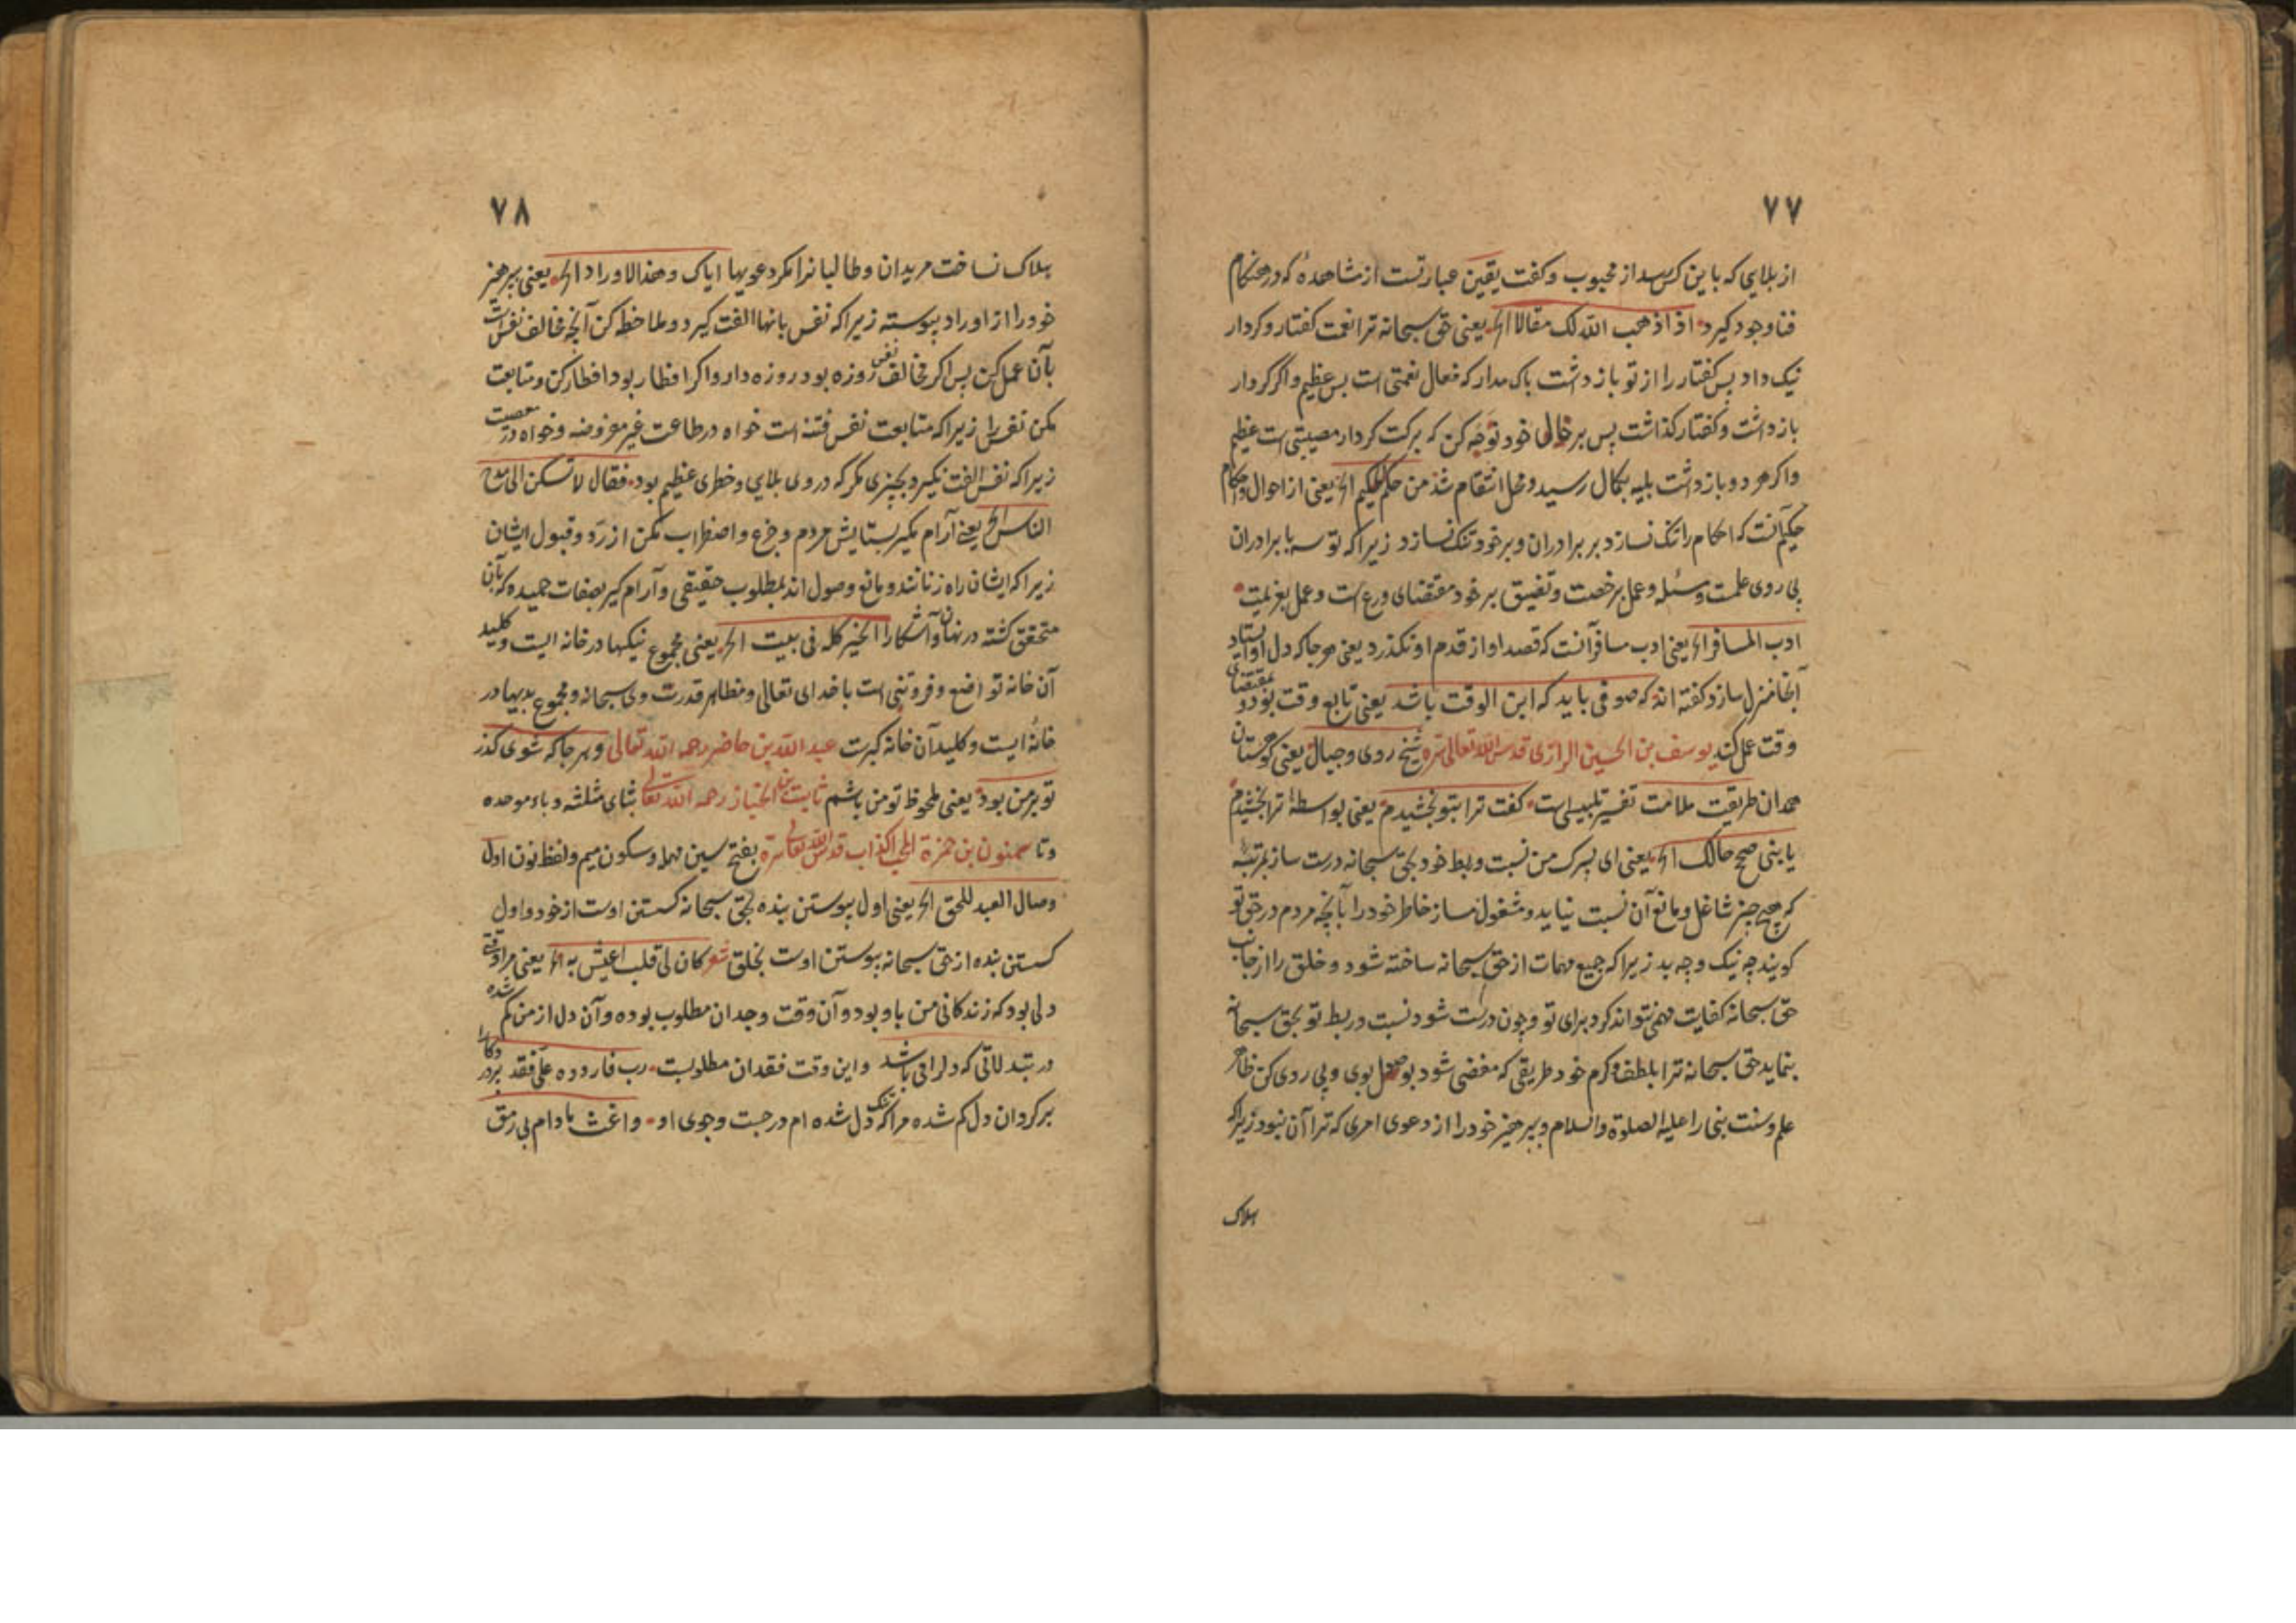 ۷۷
از بلایی که باین کس رسد از محبوب و گفت یقین عبارتست از مشاهدهٔ که در هنکام
فنا وجود گیرد اذا اذهب الله لک مقالا الخ یعنی حق سبحانه ترا نعمت کفتار و کردار
نیک داد پس کفتار را از تو باز داشت باک مدار که فعال نعمتی است بس عظیم و اگر کردار
باز داشت و کفتار کذاشت پس بر خالی خود نوحه کن که برکت کردار مصیبتی است عظیم
و اکر هر دو باز داشت بلیه بکمال رسید و محل انتقام شد من حکم الحکیم الخ یعنی از احوال و احکام
حکیم آنست که احکام را تنک نسازد بر برادران و بر خود تنک سازد زیرا که توسعه با برادران
پی روی علمست و عمل برخصت و تضییق بر خود مقتضای ورع است و عمل بعزیمت
ادب المسافر الخ یعنی ادب مسافر آنست که قصد او از قدم او نکذرد یعنی هر جا که دل او بایستاد
آنجا منزل سازد کفته اند که صوفی باید که ابن الوقت باشد یعنی تابع وقت بود و بمقتضای
وقت عمل کند یوسف بن الحسین الرازی قدس الله تعالی سره شیخ ردی و جبال یعنی کوهستان
همدان طریقت ملامت تفسیر تلبیس است کفت ترا بتو بخشیدم یعنی بواسطهٔ ترا بخشیدم
یا بنی صحح حالک الخ یعنی ای پسرک من نسبت و ربط خود بحق سبحانه درست ساز بمرتبهٔ
که هیچ چیز شاغل و مانع آن نسبت نیاید و مشغول مساز خاطر خود را بآنچه مردم در حق تو
کویند چه نیک و چه بد زیرا که جمیع مهمات از حق سبحانه ساخته شود و خلق را از جانب
حق سبحانه کفایت مهمی نتواند کرد برای تو و چون درست شود نسبت و ربط تو بحق سبحانه
بنماید حق سبحانه ترا بلطف و کرم خود طریقی که مفضی شود بوصول بوی و پی روی کن ظاهر
علم و سنت نبی را علیه الصلوة والسلام و بپرهیز خود را از دعوی امری که ترا آن نبود زیرا که
هلاک
۷۸
هلاک نساخت مریدان و طالبانرا مکر دعویها ایاک و هذا الاوراد الخ یعنی بپرهیز
خود را از اوراد پیوسته زیرا که نفس بانها الفت کیرد و ملاحظه کن آنچه مخالف نفس است
بآن عمل کن پس اکر مخالف نفس روزه بود روزه دار و اکر افطار بود افطار کن و متابعت
مکن نفس را زیرا که متابعت نفس فتنه است خواه در طاعت غیر مفروضه و خواه در معصیت
زیرا که نفس الفت نکیرد بچیزی مکر که در وی بلایی و خطری عظیم بود فقال لا تسکن الی مدح
الناس الخ یعنی آرام مکیر بستایش مردم و جزع و اضطراب مکن از رد و قبول ایشان
زیرا که ایشان راه زنانند و مانع وصول اند بمطلوب حقیقی و آرام کیر بصفات حمیده که بآن
متحقق کشته در نهان و آشکارا الخیر کله فی بیت الخ یعنی مجموع نیکیها در خانه ایست و کلید
آن خانه تواضع و فروتنی است با خدای تعالی و مظاهر قدرت وی سبحانه و مجموع بدیها در
خانهٔ ایست و کلید آن خانه کبرست عبد الله بن حاضر رحمه الله تعالی و بهر جا که شوی کذر
تو بر من بود یعنی ملحوظ تو من باشم ثابت بن الخباز رحمه الله تعالی بثای مثلثه و باء موحده
و تا سمنون بن حمزة المحب الکذاب قدس الله تعالی سره بفتح سین مهمله و سکون میم و لفظ نون اول
وصال العبد للحق الخ یعنی اول پیوستن بنده بحق سبحانه کسستن اوست از خود و اول
کسستن بنده از حق سبحانه پیوستن اوست بخلق شعر کان لی قلب اعیش به الخ یعنی مرا وقتی
دلی بود که زندکانی من باو بود و آن وقت وجدان مطلوب بوده و آن دل از من کم شده
واین وقت فقدان مطلوبست رب فاردده علی فقد
بر کردان دل کم شده مرا که تنک دل شده ام در جست و جوی او واغث مادام بی رمق